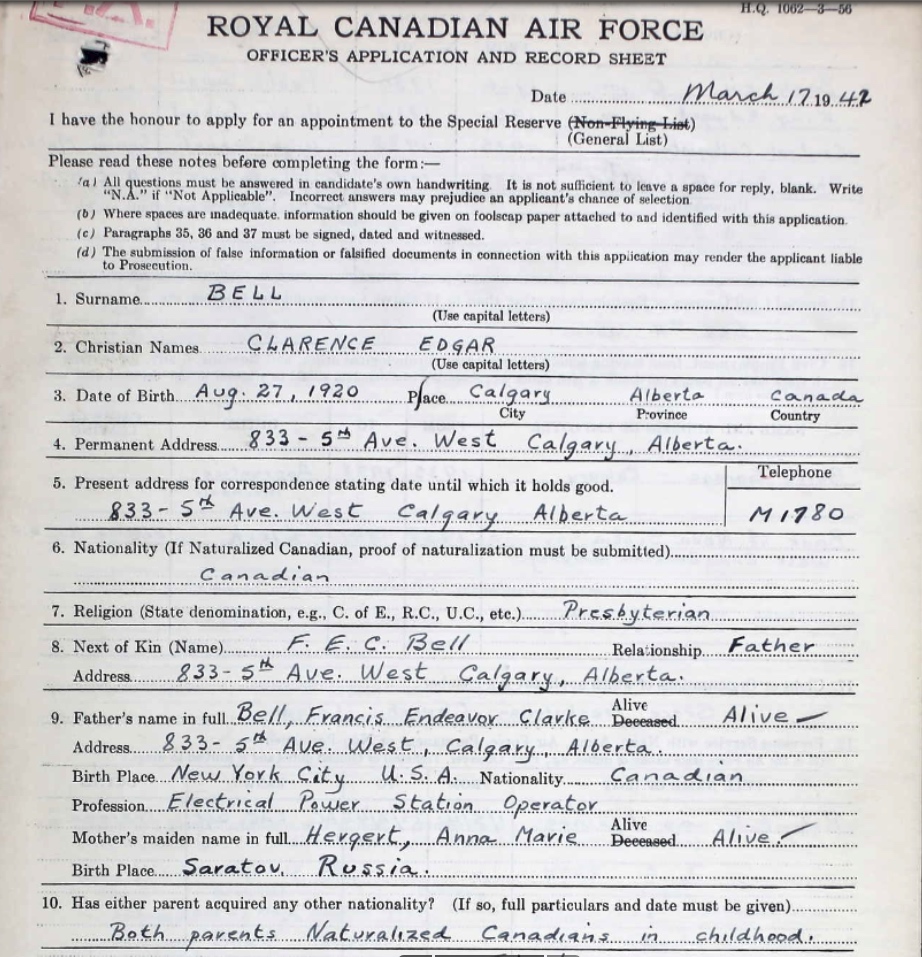 H.Q. 1062—3—56
ROYAL CANADIAN AIR FORCE
OFFICER'S APPLICATION AND RECORD SHEET
Date March 17 1942
I have the honour to apply for an appointment to the Special Reserve (Non-Flying List)
(General List)
Please read these notes before completing the form:—
(a) All questions must be answered in candidate's own handwriting. It is not sufficient to leave a space for reply, blank. Write
"N.A." if "Not Applicable". Incorrect answers may prejudice an applicant's chance of selection
(b) Where spaces are inadequate. information should be given on foolscap paper attached to and identified with this application.
(c) Paragraphs 35, 36 and 37 must be signed, dated and witnessed.
(d) The submission of false information or falsified documents in connection with this application may render the applicant liable
to Prosecution.
1. Surname BELL
(Use capital letters)
2. Christian Names CLARENCE EDGAR
(Use capital letters)
3. Date of Birth Aug. 27, 1920 Place Calgary Alberta Canada
City Province Country
4. Permanent Address 833 - 5th Ave. West Calgary, Alberta.
Telephone
5. Present address for correspondence stating date until which it holds good.
833 - 5th Ave. West Calgary Alberta M1780
6. Nationality (If Naturalized Canadian, proof of naturalization must be submitted)
Canadian
7. Religion (State denomination, e.g., C. of E., R.C., U.C., etc.) Presbyterian
8. Next of Kin (Name) F. E. C. Bell Relationship Father
Address 833 - 5th Ave. West Calgary, Alberta.
9. Father's name in full Bell, Francis Endeavor Clarke Alive Deceased Alive
Address 833 - 5th Ave. West, Calgary, Alberta.
Birth Place New York City U.S.A. Nationality Canadian
Profession Electrical Power Station Operator
Mother's maiden name in full Hergert, Anna Marie Alive Deceased Alive
Birth Place Saratov, Russia.
10. Has either parent acquired any other nationality? (If so, full particulars and date must be given)
Both parents Naturalized Canadians in childhood.